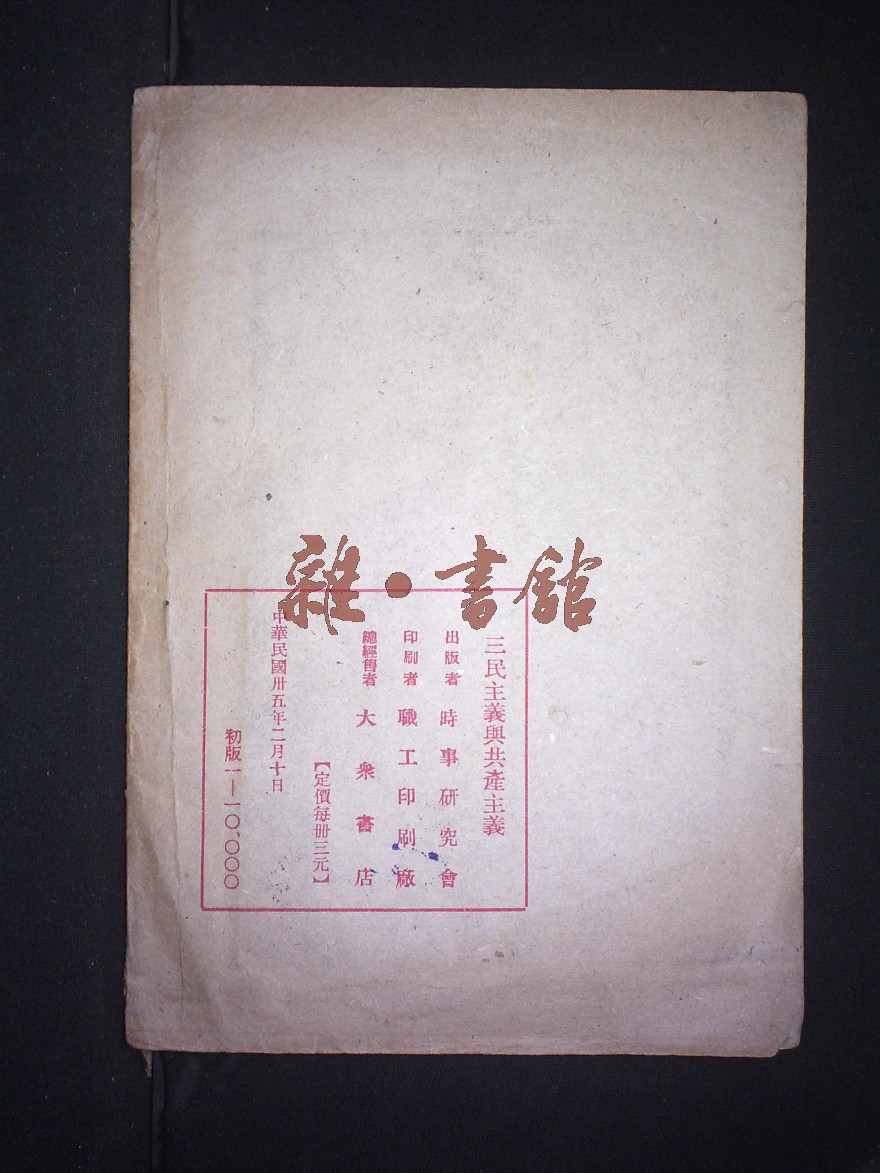 雜·書館
三民主義與共產主義
出版者 時事研究會
印刷者 職工印刷廠
總經售者 大衆書店
【定價每册三元】
中華民國卅五年二月十日
初版一—一〇,〇〇〇